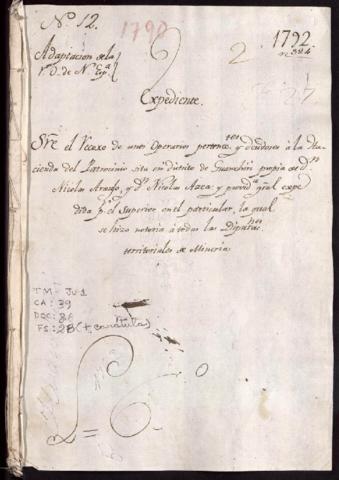 N.º 12.
1790
1792
2
Adaptacion de la
Expediente.
Sre el Recaxo de unos Operarios pertenec.tes y deudores à la Ha-
cienda del Patrocinio sita en distrito de Guarochiri propia de d.n
Nicolas Araujo, y d.n Nicolas Azca; y provid.a gral expe
dida p.r el Superior en el particular, la qual
se hizo notoria à todas las Diputac.nes
territoriales de Mineria
TM - JU1
CA: 39
DOC: 86
FS: 28 (+ caratula)